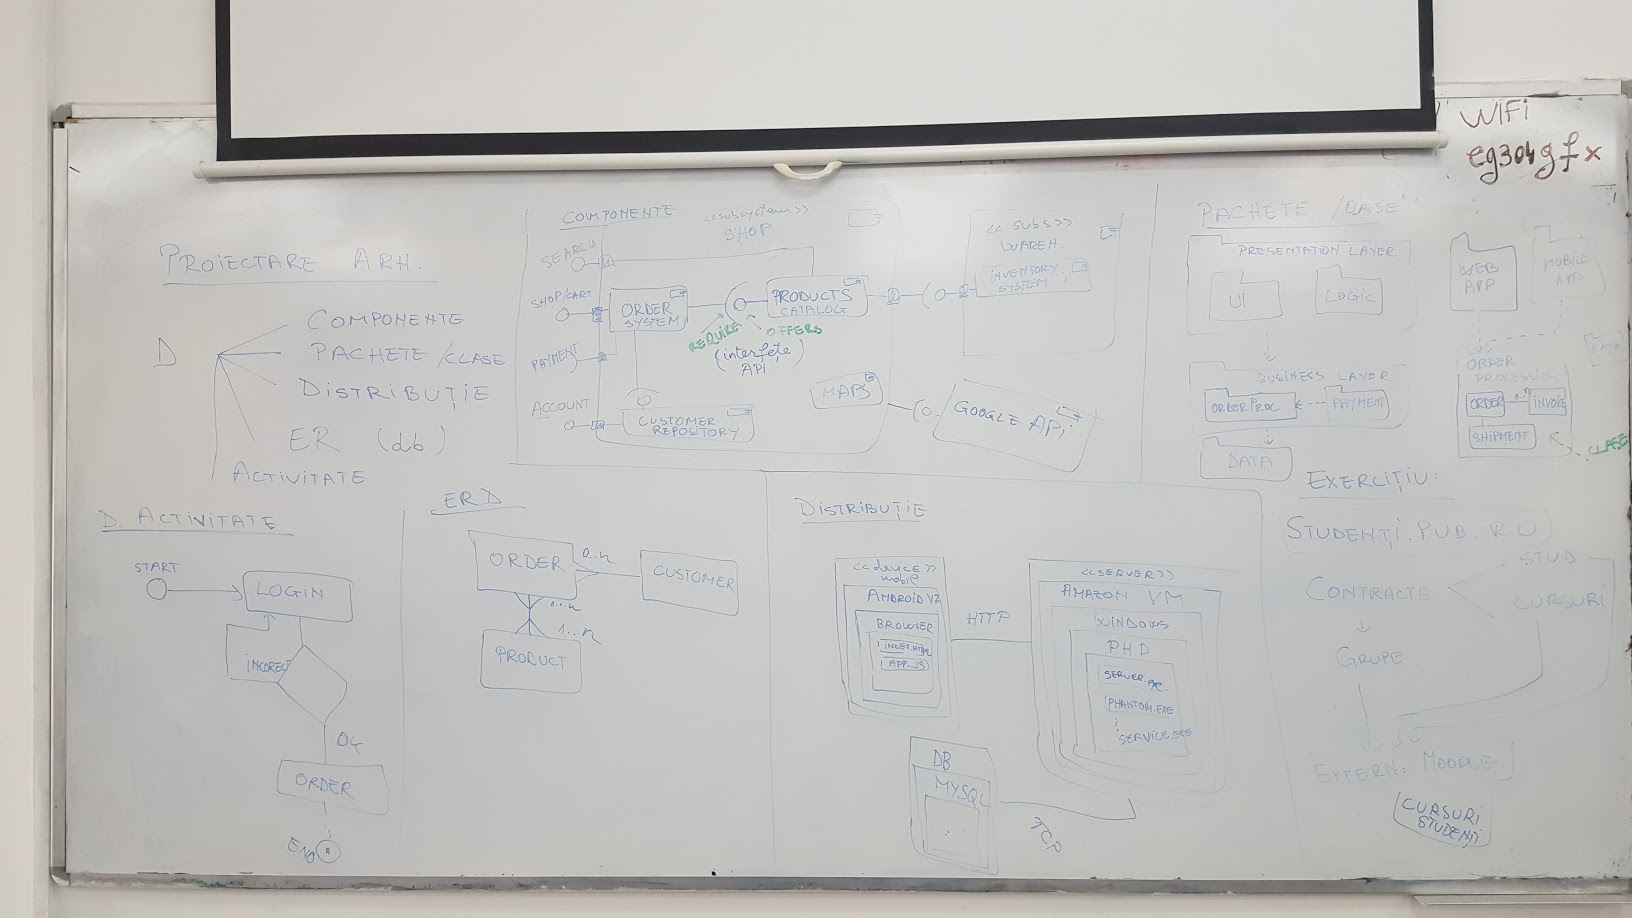 WiFi
eg304gfx
PROIECTARE ARH.
D
COMPONENTE
PACHETE/CLASE
DISTRIBUȚIE
ER (db)
ACTIVITATE
COMPONENTE
<<subsystem>>
SHOP
SEARCH
SHOP/CART
PAYMENT
ACCOUNT
ORDER
SYSTEM
PRODUCTS
CATALOG
REQUIRE
OFFERS
(interfețe)
APi
CUSTOMER
REPOSITORY
MAPS
GOOGLE APi
<<SUBS>>
WAREH.
INVENTORY
SYSTEM
PACHETE /CLASE
PRESENTATION LAYER
UI
LOGIC
BUSINESS LAYER
ORDER PROC
PAYMENT
DATA
WEB
APP
MOBILE
APP
ORDER
PROCESSING
ORDER
0..n
INVOICE
SHIPMENT
CLASE
D. ACTIVITATE
START
LOGIN
INCORECT
OK
ORDER
END
ERD
ORDER
0..n
CUSTOMER
1..n
PRODUCT
DISTRIBUȚIE
<<device>>
mobil
ANDROID V7
BROWSER
INDEX.HTML
APP.JS
HTTP
<<SERVER>>
AMAZON VM
WINDOWS
PHP
SERVER.exe
PHANTOM.EXE
SERVICE.EXE
DB
MYSQL
TCP
EXERCIȚIU:
STUDENȚI.PUB.RO
CONTRACTE
STUD
CURSURI
GRUPE
EXTERN: MOODLE
CURSURI
STUDENȚI